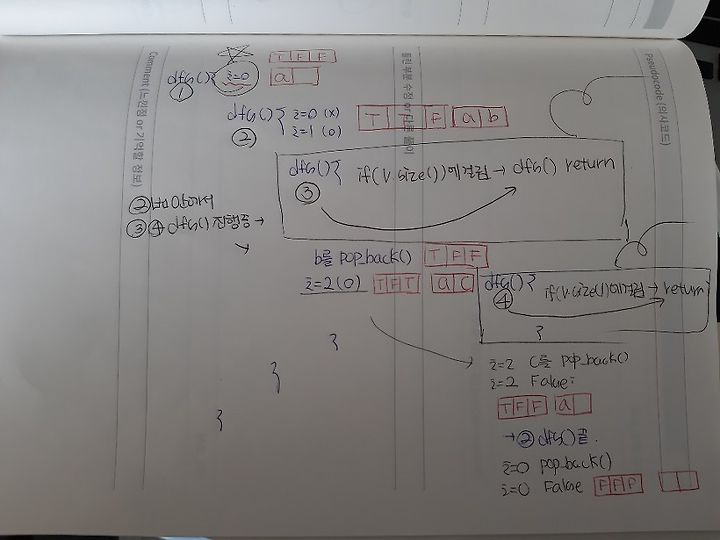 dfs(){ i=0 T F F
① a
dfs(){ i=0 (x) T T F a b
② i=1 (o)
dfs(){ if(v.size())에 걸림 → dfs() return
③
②번 안에서
③④ dfs() 진행중 →
b를 pop_back() T F F
i=2 (o) T F T a c
dfs(){ if(v.size())에 걸림 → return
④
}
}
}
}
i=2 c를 pop_back()
i=2 False:
T F F a
→ ② dfs() 끝.
i=0 pop_back()
i=0 False F F F
Comment (느낀점 or 기억할 정보)
틀린 부분 수정 or 다른 풀이
Pseudocode (의사코드)